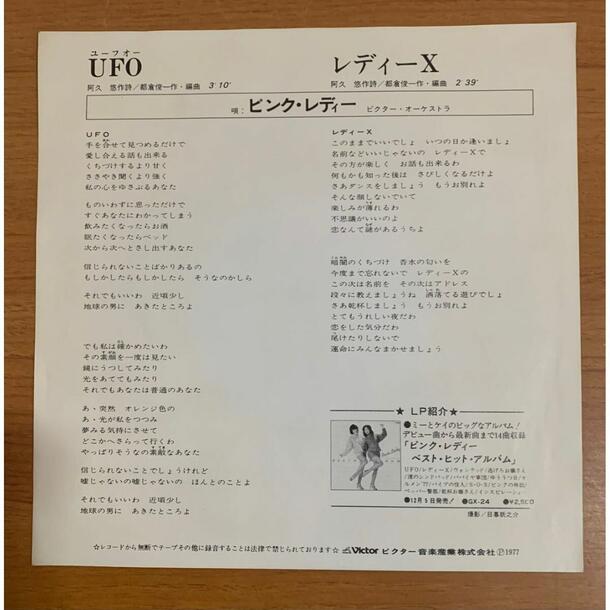 ユーフオー
UFO
阿久 悠作詩/都倉俊一作・編曲 3′10″
レディーX
阿久 悠作詩/都倉俊一作・編曲 2′39″
唄：ピンク・レディー ビクター・オーケストラ
UFO
手を合せて見つめるだけで
愛し合える話も出来る
くちづけするより甘く
ささやき聞くより強く
私の心をゆさぶるあなた
ものいわずに思っただけで
すぐあなたにわかってしまう
飲みたくなったらお酒
眠たくなったらベッド
次から次へとさし出すあなた
信じられないことばかりあるの
もしかしたらもしかしたら そうなのかしら
それでもいいわ 近頃少し
地球の男に あきたところよ
でも私は確かめたいわ
その素顔を一度は見たい
鏡にうつしてみたり
光をあててもみたり
それでもあなたは普通のあなた
あ・突然 オレンジ色の
あ・光が私をつつみ
夢みる気持にさせて
どこかへさらって行くわ
やっぱりそうなの素敵なあなた
信じられないことでしょうけれど
嘘じゃないの嘘じゃないの ほんとのことよ
それでもいいわ 近頃少し
地球の男に あきたところよ
レディーX
このままでいいでしょ いつの日か逢いましょ
名前などいいじゃないの レディーXで
その方が楽しく お話も出来るわ
何もかも知った後は さびしくなるだけよ
さあダンスをしましょう もうお別れよ
そんな顔しないでいて
楽しみが薄れるわ
不思議がいいのよ
恋なんて謎があるうちよ
暗闇のくちづけ 香水の匂いを
今度まで忘れないで レディーXの
この次は名前を その次はアドレス
段々に教えましょうね 洒落てる遊びでしょ
さあ乾杯しましょう もうお別れよ
とてもうれしい夜だわ
恋をした気分だわ
尾けたりしないで
運命にみんなまかせましょう
★LP紹介★
●ミーとケイのビッグなアルバム！
デビュー曲から最新曲まで14曲収録
「ピンク・レディー
ベスト・ヒット・アルバム」
UFO/レディーX/ウォンテッド/逃げろお嬢さん
/渚のシンドバッド/パパイヤ軍団/ゆううつ日/カ
ルメン'77/パイプの怪人/S・O・S/ピンクの林檎/
ペッパー警部/乾杯お嬢さん/インスピレーション
●12月5日発売！ ●GX-24 ●¥2,500
撮影/
☆レコードから無断でテープその他に録音することは法律で禁じられております☆ Victor ビクター音楽産業株式会社 Ⓟ1977